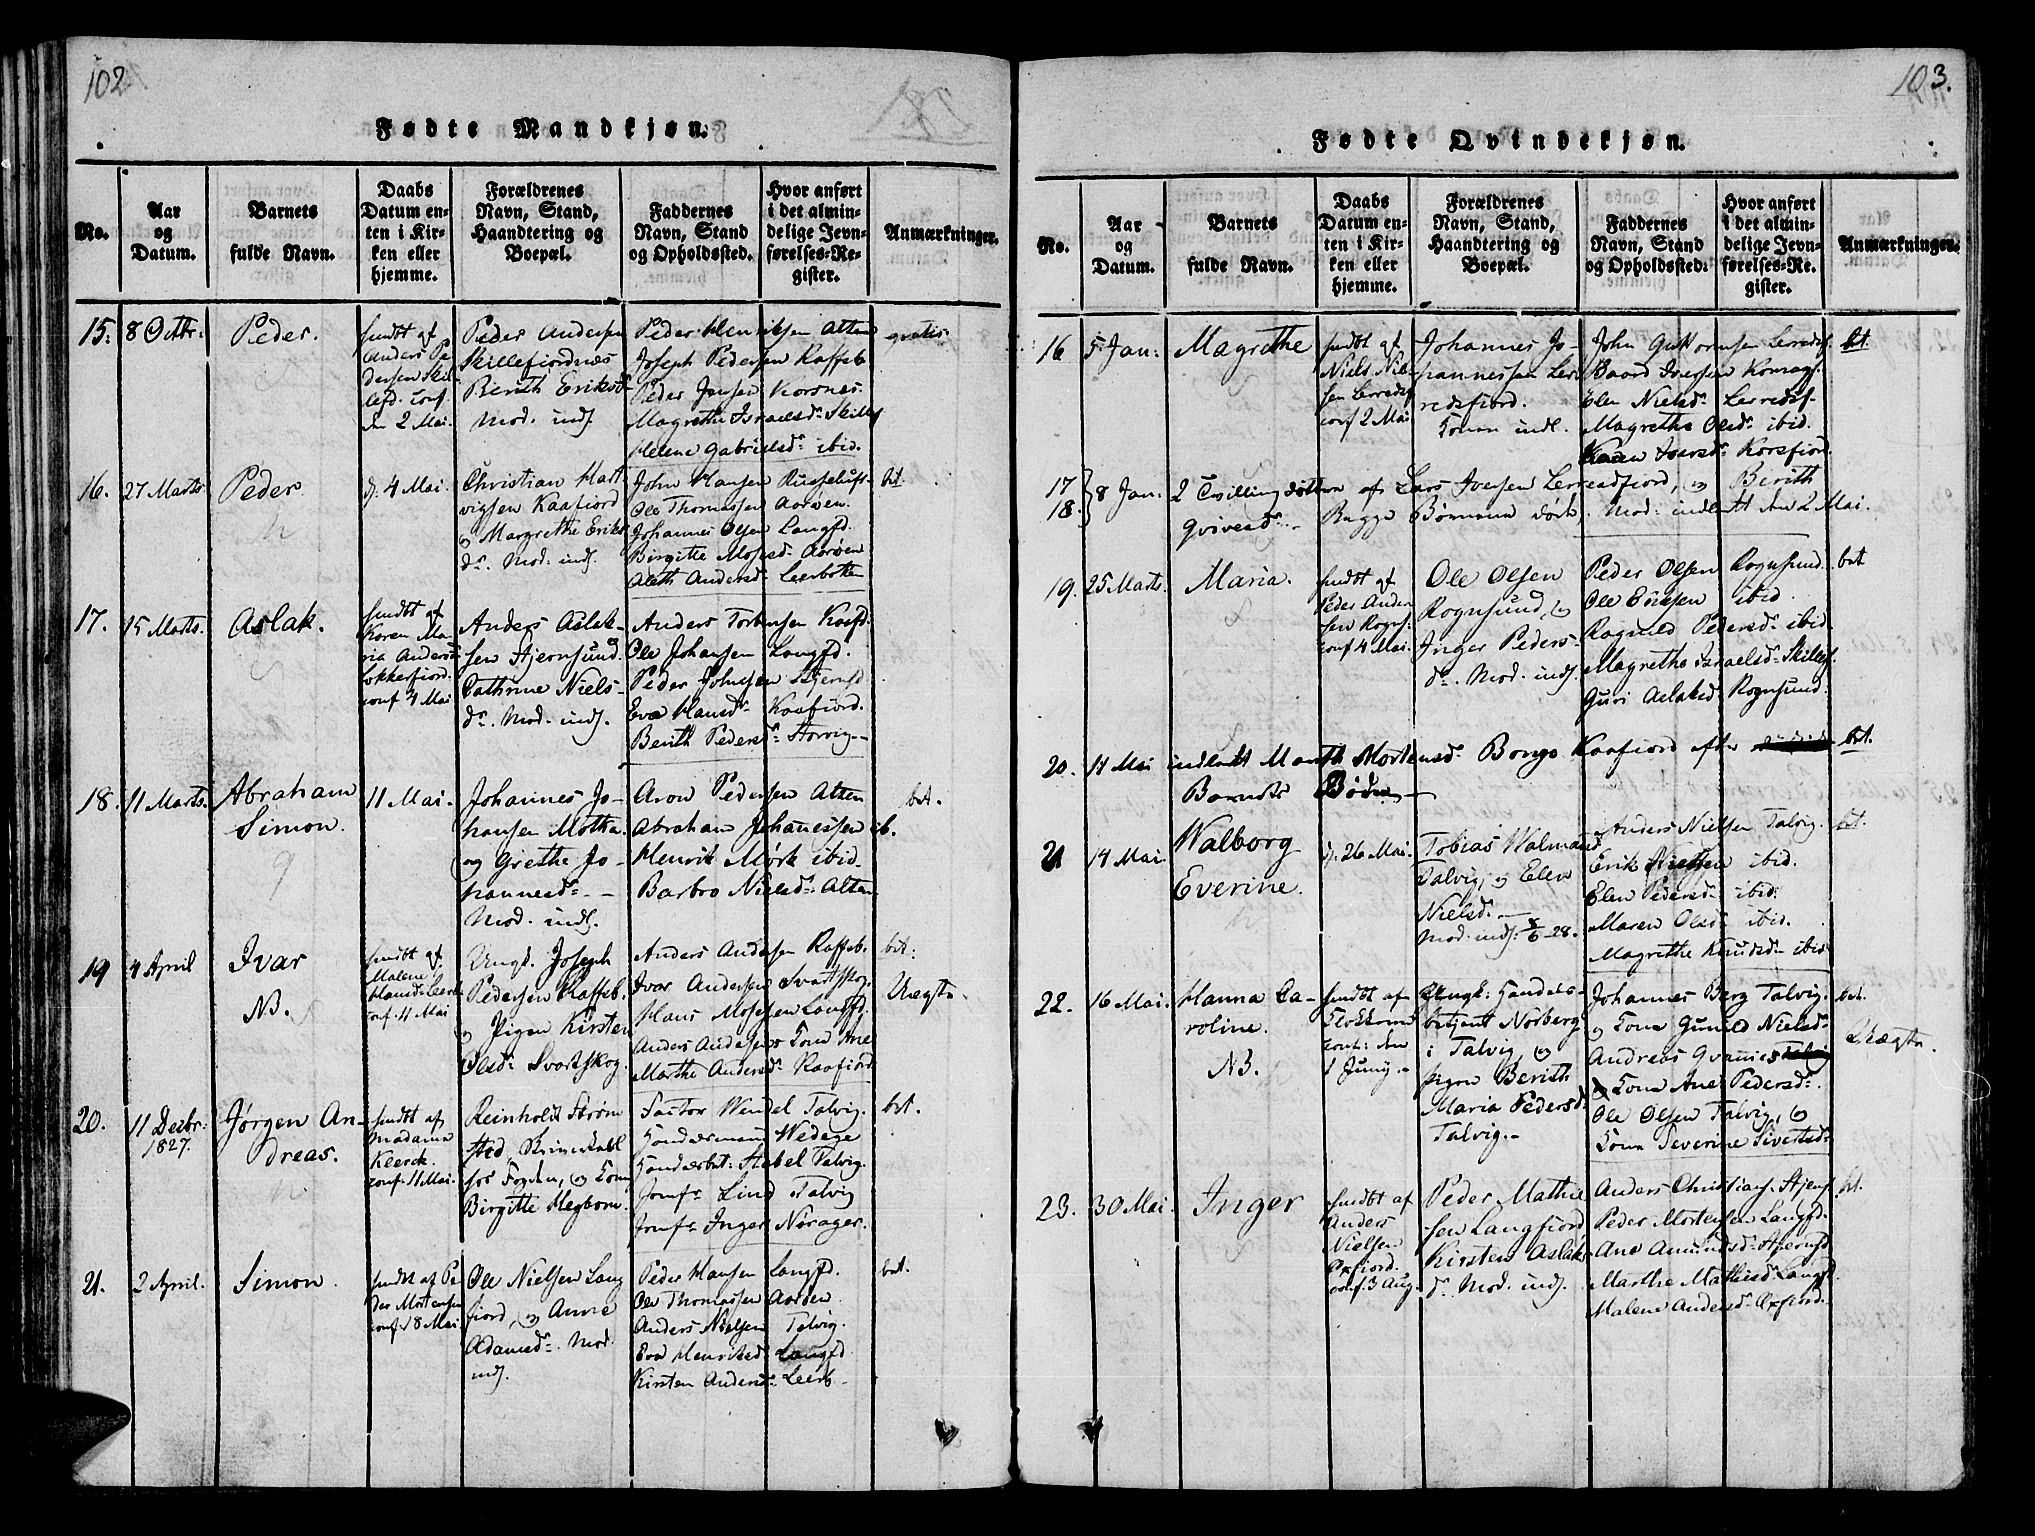 102
Fødte Mandkjøn.
No.
Aar
og
Datum.
Barnets
fulde Navn.
Daabs
Datum en-
ten i Kir-
ken eller
hjemme.
Forældrenes
Navn, Stand,
Haandtering og
Boepæl.
Faddernes
Navn, Stand
og Opholdssted.
Hvor anført
i det almin-
delige Jevn-
førelses-Re-
gister.
Anmærkninger.
15.
8 Octbr:
Peder.
hiemdt af
Anders Pe
dersen Skil-
lefd. conf.
den 2 Mai.
Peder Andersen
Skillefiordnæs
Berith Eriksd
Mod. indl.
Peder Henriksen Alten
Joseph Pedersen Raffeb
Peder Jensen Korsnes
Magrethe Israelsd. Skillef
Helene Gabrielsd. ibid.
gratis
16.
27 Marts
Peder
d. 4 Mai.
Christian Hart
vigsen Kaafiord
og Margrethe Eriks
dr. Mod. indl.
John Hansen Russeluft
Ole Thomassen Aarøen.
Johannes Olsen Langfd.
Birgitte Mosesd. Aarøen
Aleth Andersd. Leerbotten
bet
17.
15 Marts.
Aslak.
hiemdt af
Karen Ma-
ria Andersd
Lokkerfiord
conf 4 Mai
Anders Aslak-
sen Stjernsund. og
Cathrine Niels-
dr. Mod. indl.
Anders Torbensen Kaafd.
Ole Johansen Langfd.
Peder Johnsen Stjernsd
Eva Hansd. Kaafiord.
Berith Pedersd. Storvig
18.
11 Marts.
Abraham
Simon.
11 Mai.
Johannes Jo-
hansen Motka.
og Grethe Jo-
hannesd.
Mod. indl.
Aron Pedersen Alten
Abraham Johannessen ib.
Henrik Mørk ibid.
Barbro Nielsd. Alten
bet.
19
4 April
Ivar
NB.
hiemdt af
Malene
Hansd. Leerb
conf. 11 Mai
Ungk. Joseph
Pedersen Raffeb.
og Pigen Kirsten
Olsd. Svartskog.
Anders Andersen Raffeb.
Ivar Andersen Svartskog.
Hans Mosesen Langfd.
Anders Andersens Kona Ane
Marthe Andersd. Kaafiord
bet:
Uægte.
20.
11 Decbr:
1827.
Jørgen An-
dreas.
hiemdt af
Madame
Klerck.
conf. 11 Mai.
Reinholdt Strøm
sted, Skriverkarl
hos Fogden, og Kona
Birgitte Hegbom.
Factor Wendel Talvig.
Handelsmand Wedege
Handelsbet: Stabel Talvig.
Jomfr Lind Talvig
Jomfr Inger Norager.
bet.
21.
2 April.
Simon.
hiemdt af Pe
der Mortensen
conf. 18 Mai.
Ole Nielsen Lang
fiord, og Anne
Adamsd. Mod.
indl.
Peder Hansen Langfd.
Ole Thomassen Aarøen.
Anders Nielsen Talvig.
Eva Henriksd. Langfd
Kirsten Andersd. Leerb
bet.
103.
Fødte Qvindekjøn.
No.
Aar
og
Datum.
Barnets
fulde Navn.
Daabs
Datum en-
ten i Kir-
ken eller
hjemme.
Forældrenes
Navn, Stand,
Haandtering og
Boepæl.
Faddernes
Navn, Stand
og Opholdssted.
Hvor anført
i det almin-
delige Jevn-
førelses-Re-
gister.
Anmærkninger.
16
5 Jan:
Magrethe
hiemdt af
Niels Niel-
sen Lerredsf
conf 2 Mai
Johannes Jo-
hannessen Ler-
redsfiord.
Konen indl.
John Guttormsen Lerredsf.
Baard Iversen Komagf.
Elen Nielsd. Lerredsf.
Magrethe Olsd. ibid.
Karen Iversd. Korsfiord.
bet
17
18.
8 Jan:
2 Tvillingdøttre af Lars Iversen Lerredfiord, og Berith
Qvivesd. Begge Børnene døde, Mod: indledt den 2 Mai.
19.
25 Marts.
Maria.
hiemdt af
Peder Ander
sen Rogns.
conf 4 Mai.
Ole Olsen
Rognsund, og
Inger Peders-
dr. Mod. indl.
Peder Olsen Rognsund.
Ole Ericsen ibid.
Ragnild Pedersd. ibid.
Magrethe Israelsd. Skillef.
Guri Aslaksd. Rognsund.
bet
20.
11 Mai
indledt Marith Mortensd. Bongo Kaafiord efter
Barnets Døden
bet.
21
14 Mai
Walborg
Everine.
d. 26 Mai.
Tobias Walmand
Talvig, og Elen
Nielsd.
Mod. indl. 28.
Anders Nielsen Talvig.
Erik Nielsen ibid.
Elen Pedersd. ibid.
Maren Olsd. ibid.
Magrethe Knudsd. ibid
bet.
22.
16 Mai.
Hanna Ca-
roline.
NB.
hiemdt af
Klokkeren
conf: den
1 Juny.
Ungk: Handels-
betjent Norberg
i Talvig, og
pigen Berith
Maria Pedersd.
Talvig.
Johannes Berg Talvig.
og Kona Gunild Nielsd.
Andreas Qvænnes Talvig
og Kona Ane Pedersd.
Ole Olsen Talvig, og
Kona Severine Sivertsd.
bet.
Uægte.
23.
30 Mai.
Inger
hiemdt af
Anders
Nielsen
Oxfiord.
conf. 3 Aug.
Peder Mathie
sen Langfiord
Kirsten Aslaks-
d. Mod. indl.
Anders Christians. Stjens
Peder Mortensen Langfd.
Ane Amundsd. Stjernsd
Marthe Mathisd. Langfd.
Malene Andersd. Oxfiord.
bet.